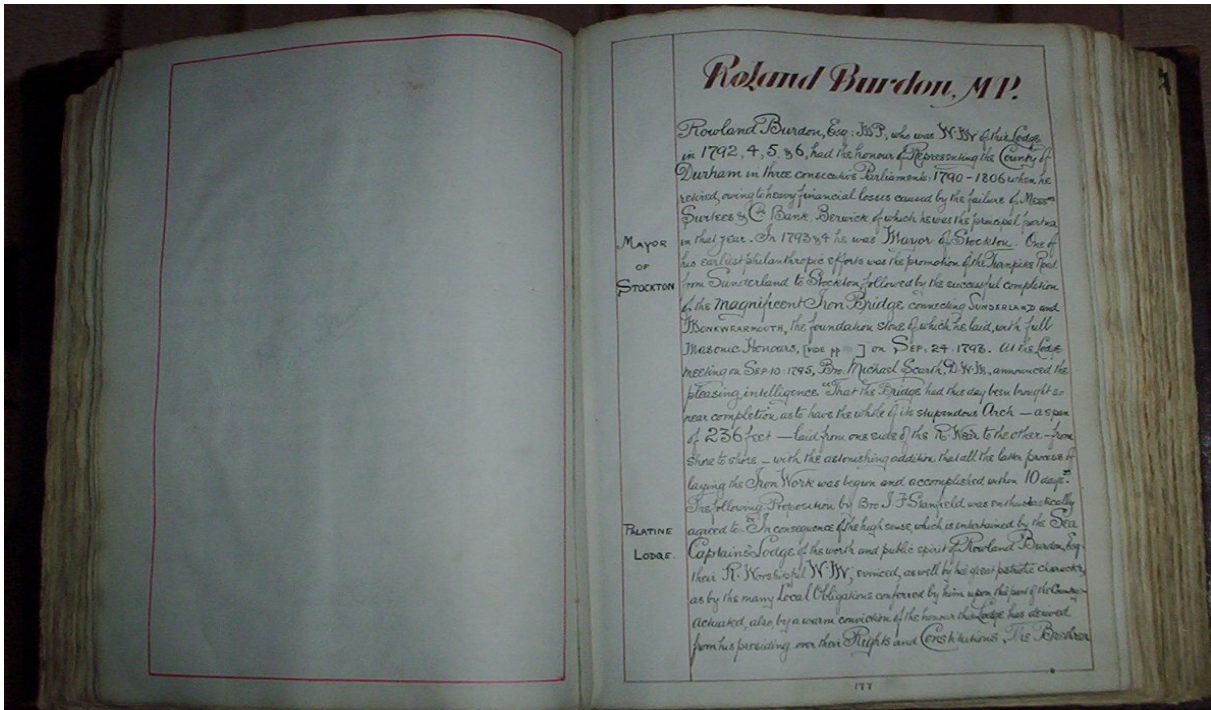 Roland Burdon, MP.
Rowland Burdon, Esq: M.P., who was W.M of this Lodge
in 1792, 4, 5, & 6, had the honour of Representing the County of
Durham in three consecutive Parliaments: 1790 - 1806 when he
retired, owing to heavy financial losses caused by the failure of Messrs
Surtees & Co Bank. Berwick of which he was the principal partner
in that year. In 1793 & 4 he was Mayor of Stockton. One of
his earliest philanthropic efforts was the promotion of the Turnpike Road
from Sunderland to Stockton, followed by the successful completion
of the Magnificent Iron Bridge connecting SUNDERLAND and
MONKWEARMOUTH, the foundation stone of which he laid, with full
Masonic Honours, [VIDE pp ] on SEP. 24. 1793. At the Lodge
meeting on SEP. 10: 1795, Bro. Michael Scarth, D.W.M., announced the
pleasing intelligence "That the Bridge had this day been brought so
near completion, as to have the whole of its stupendous Arch — a span
of 236 feet — laid from one side of the R. Wear to the other — from
shore to shore — with the astonishing addition that all the latter process of
laying the Iron Work was begun and accomplished within 10 days."
The following Proposition by Bro J F Stanfield was enthusiastically
agreed to "In consequence of the high sense, which is entertained by the Sea
Captains' Lodge of the worth and public spirit of Rowland Burdon, Esq.
their R. Worshipful W.M, evinced, as well by his great patriotic character,
as by the many Local Obligations conferred by him upon this part of the Country
Actuated, also, by a warm conviction of the honour this Lodge has derived
from his presiding over their Rights and Constitutions, The Brethren
MAYOR
OF
STOCKTON
PALATINE
LODGE.
177